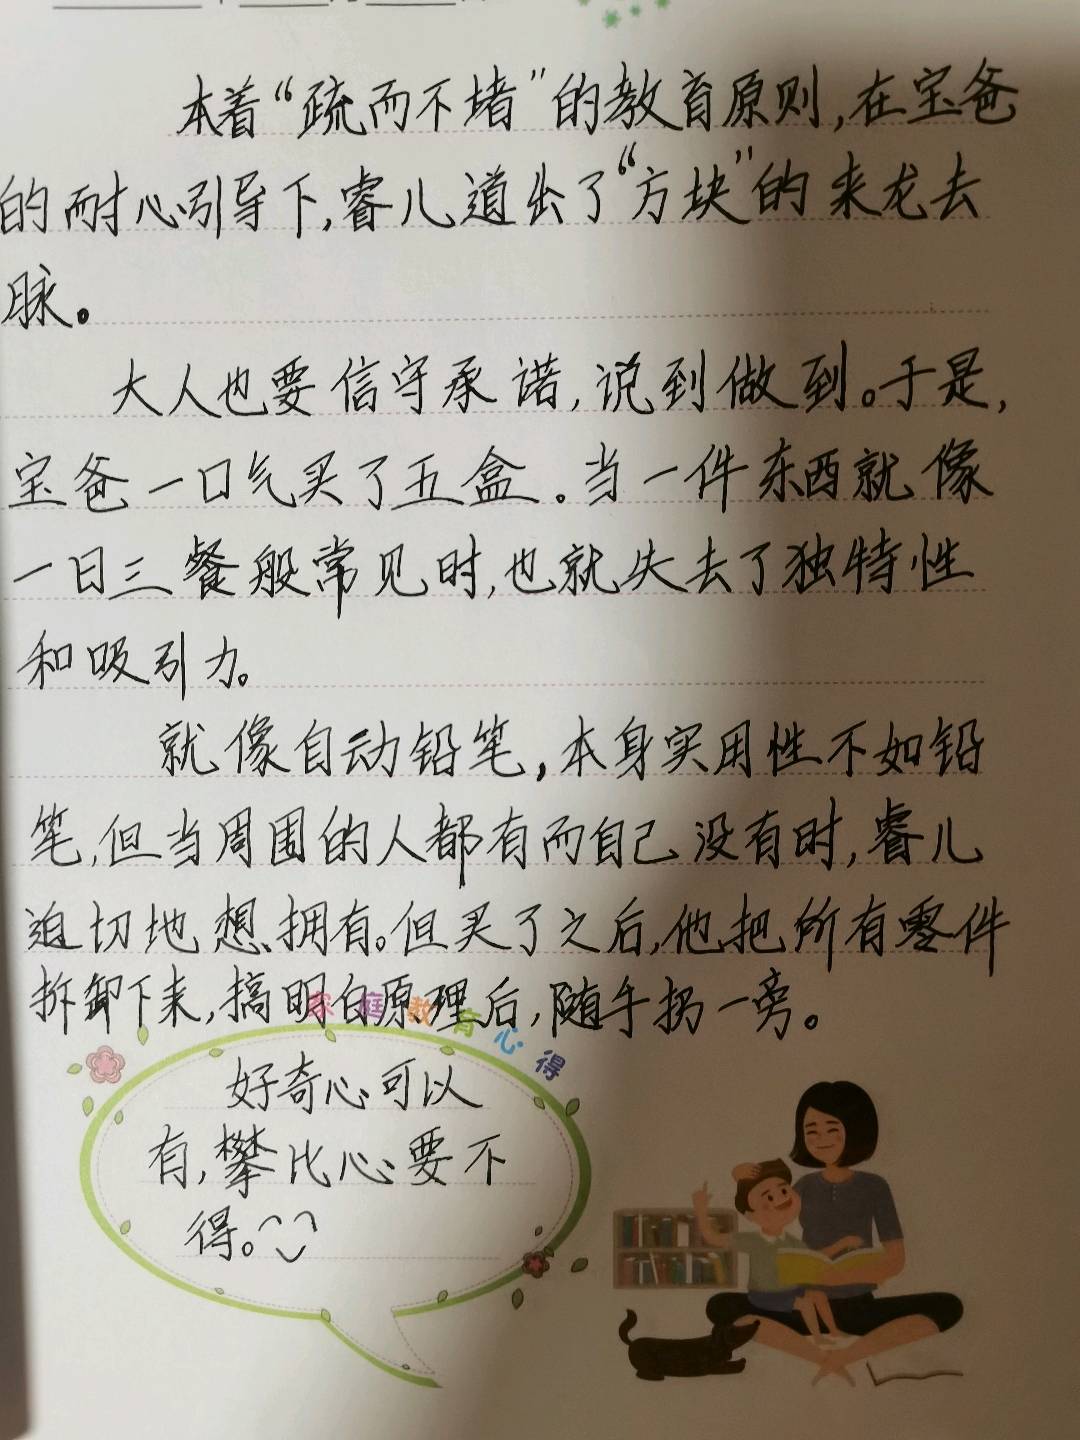 本着“疏而不堵”的教育原则,在宝爸
的耐心引导下,睿儿道出了“方块”的来龙去
脉。
大人也要信守承诺,说到做到。于是,
宝爸一口气买了五盒。当一件东西就像
一日三餐般常见时,也就失去了独特性
和吸引力。
就像自动铅笔,本身实用性不如铅
笔,但当周围的人都有而自己没有时,睿儿
迫切地想拥有。但买了之后,他把所有零件
拆卸下来,搞明白原理后,随手扔一旁。
家庭教育心得
好奇心可以
有,攀比心要不
得。